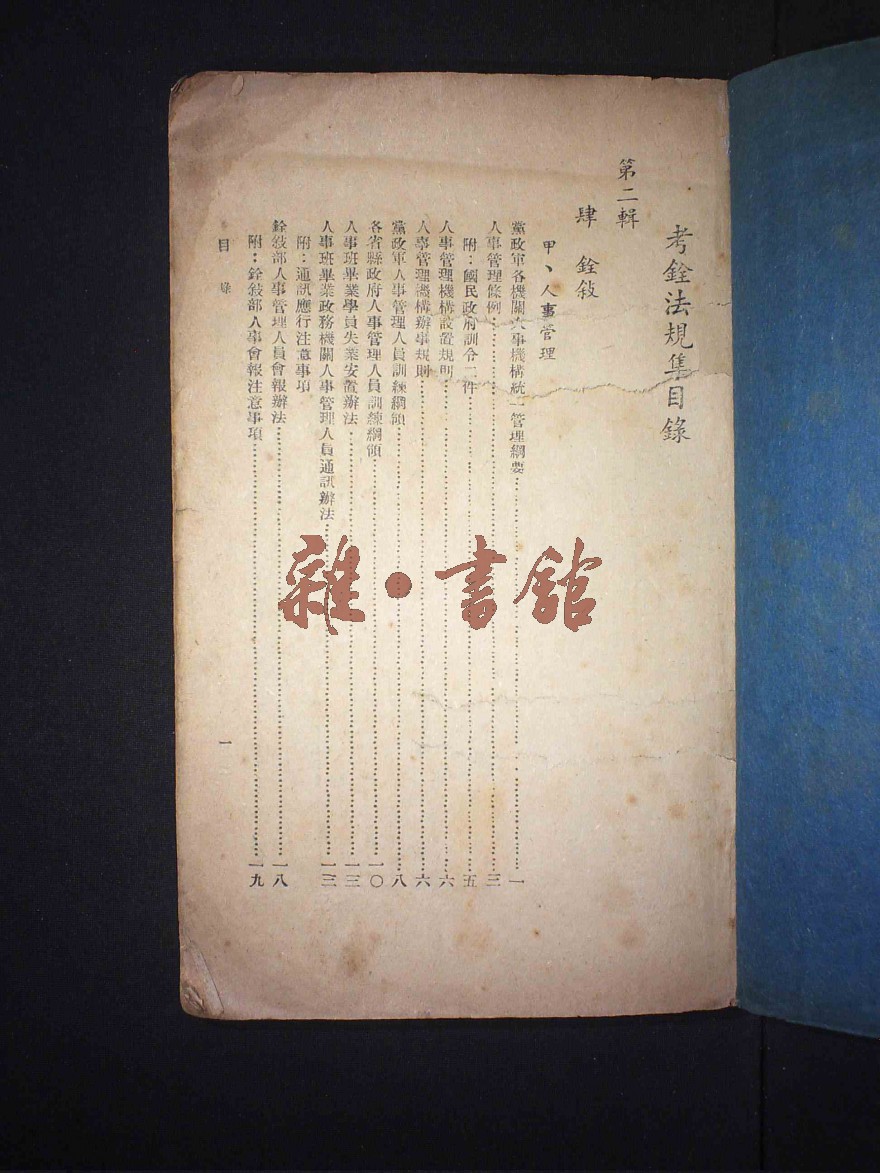 考銓法規集目錄
第二輯
肆 銓敍
甲、人事管理
黨政軍各機關人事機構統一管理綱要……一
人事管理條例……三
附：國民政府訓令二件……五
人事管理機構設置規則……六
人事管理機構辦事規則……六
黨政軍人事管理人員訓練綱領……八
各省縣政府人事管理人員訓練綱領……一〇
人事班畢業學員失業安置辦法……一三
人事班畢業政務機關人事管理人員通訊辦法……一三
附：通訊應行注意事項
銓敍部人事管理人員會報辦法……一八
附：銓敍部人事會報注意事項……一九
目錄
一
雜·書館